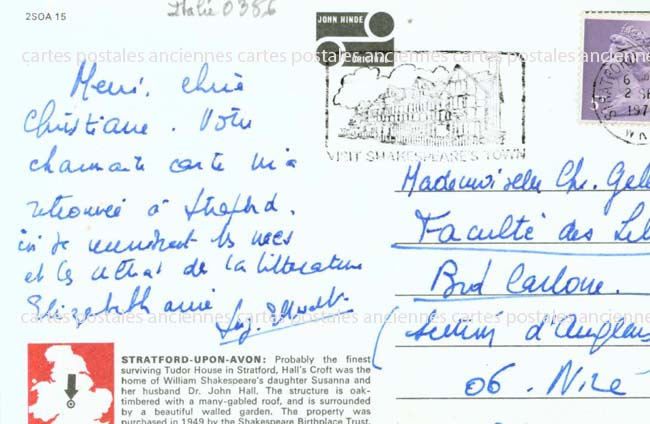 Italie 0386
2SOA 15
JOHN HINDE
ORIGINAL
cartes postales anciennes cartes postales anciennes cartes postales anciennes cartes postales anciennes
VISIT SHAKESPEARE'S TOWN
Merci, chère
Christiane. Votre
charmante carte m'a
retrouvée à Stratford.
ici se
et les de la littérature
Elizabethaine
Mademoiselle Chr.
Faculté des
Bvd Carlone.
(section d'Anglais
06. Nice
cartes postales anciennes cartes postales anciennes cartes postales anciennes cartes postales anciennes
STRATFORD-UPON-AVON: Probably the finest
surviving Tudor House in Stratford, Hall's Croft was the
home of William Shakespeare's daughter Susanna and
her husband Dr. John Hall. The structure is oak-
timbered with a many-gabled roof, and is surrounded
by a beautiful walled garden. The property was
purchased in 1949 by the Shakespeare Birthplace Trust.